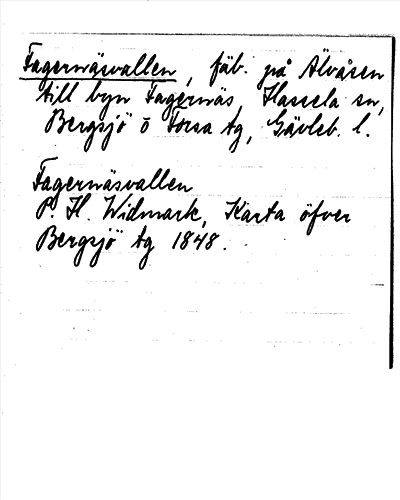 Fagernäsvallen, fäb. på Älvåsen
till byn Fagernäs, Hassela sn,
Bergsjö o Forsa tg, Gävleb. l.
Fagernäsvallen
P. H. Widmark, Karta öfver
Bergsjö tg 1848.